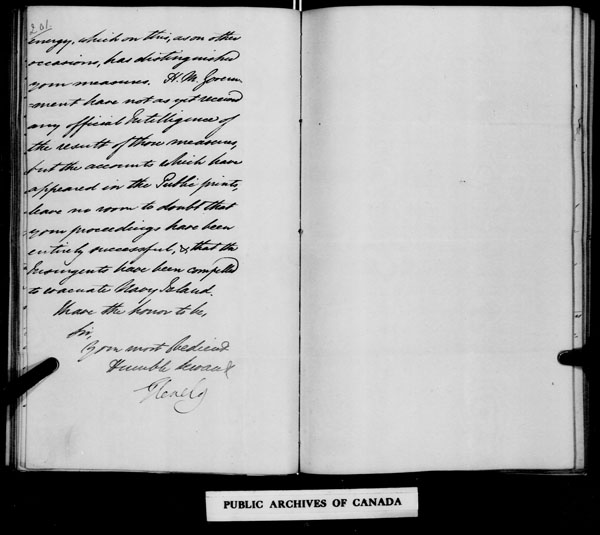 201.
energy, which on this, as on other
occasions, has distinguished
your measures. H. M. Govern-
-ment have not as yet received
any official Intelligence of
the result of those measures,
but the accounts which have
appeared in the Public prints,
leave no room to doubt that
your proceedings have been
entirely successful, & that the
Insurgents have been compelled
to evacuate Navy Island.
I have the honor to be,
Sir,
Your most obedient
Humble Servant
Glenelg
PUBLIC ARCHIVES OF CANADA